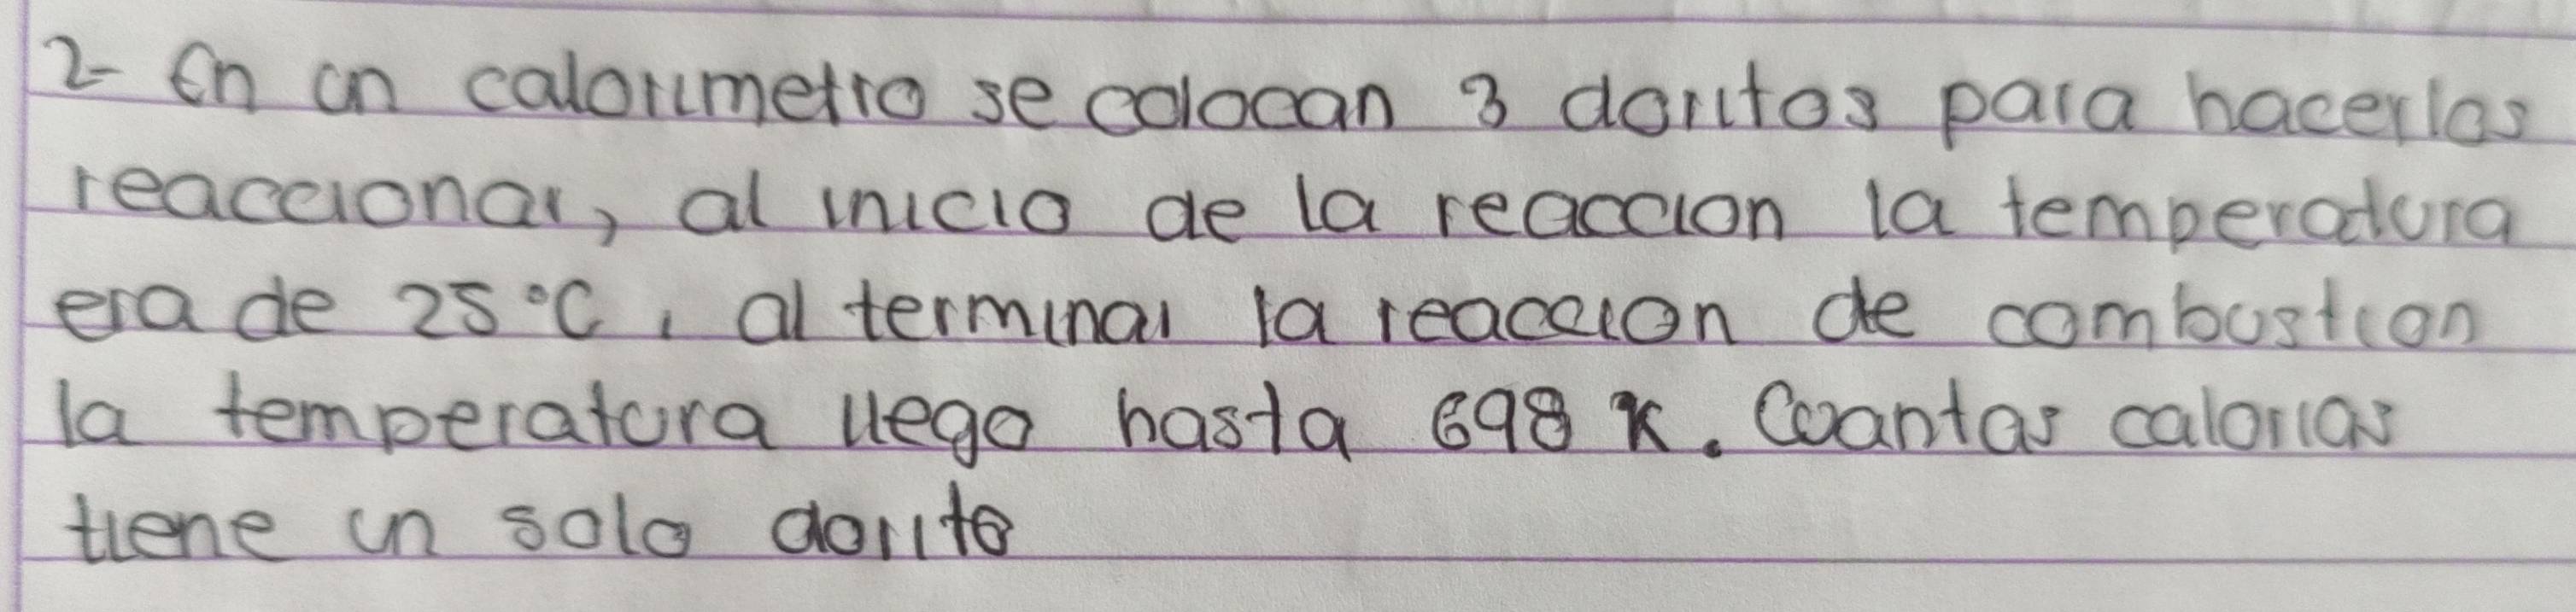 2- En un calorimetro se colocan 3 doritos para hacerlos
reaccionar, al inicio de la reaccion la temperatura
era de 25 °C, al terminar la reaccion de combustion
la temperatura llego hasta 698 K. Cuantas calorias
tiene un solo dorito